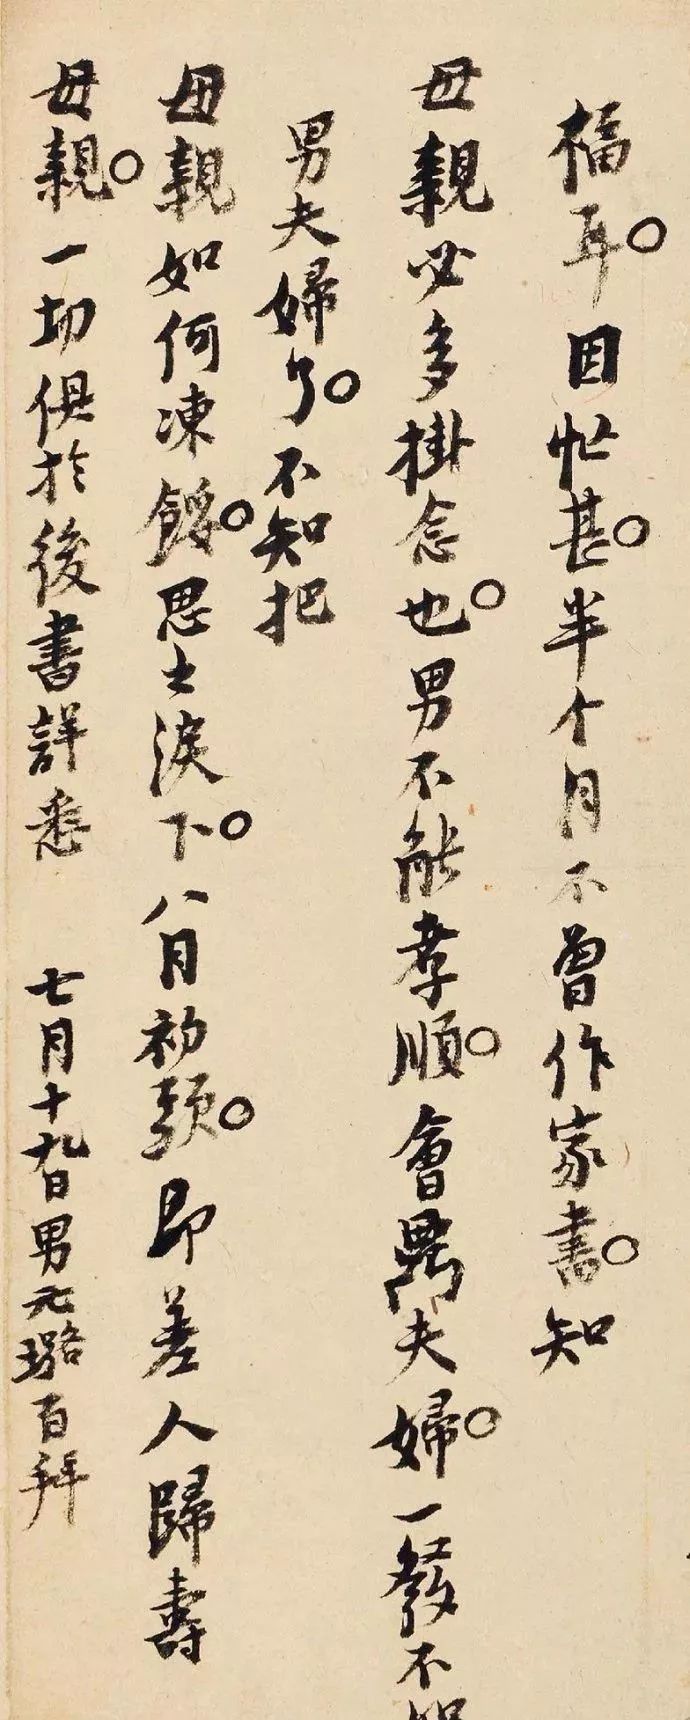 福耳。因忙甚。半个月不曾作家書。知
母親必多掛念也。男不能孝順。會鼎夫婦。一發不如
男夫婦了。不知把
母親如何凍餒。思之淚下。八月初頭。即差人歸壽
母親。一切俱於後書詳悉 七月十九日男元璐百拜